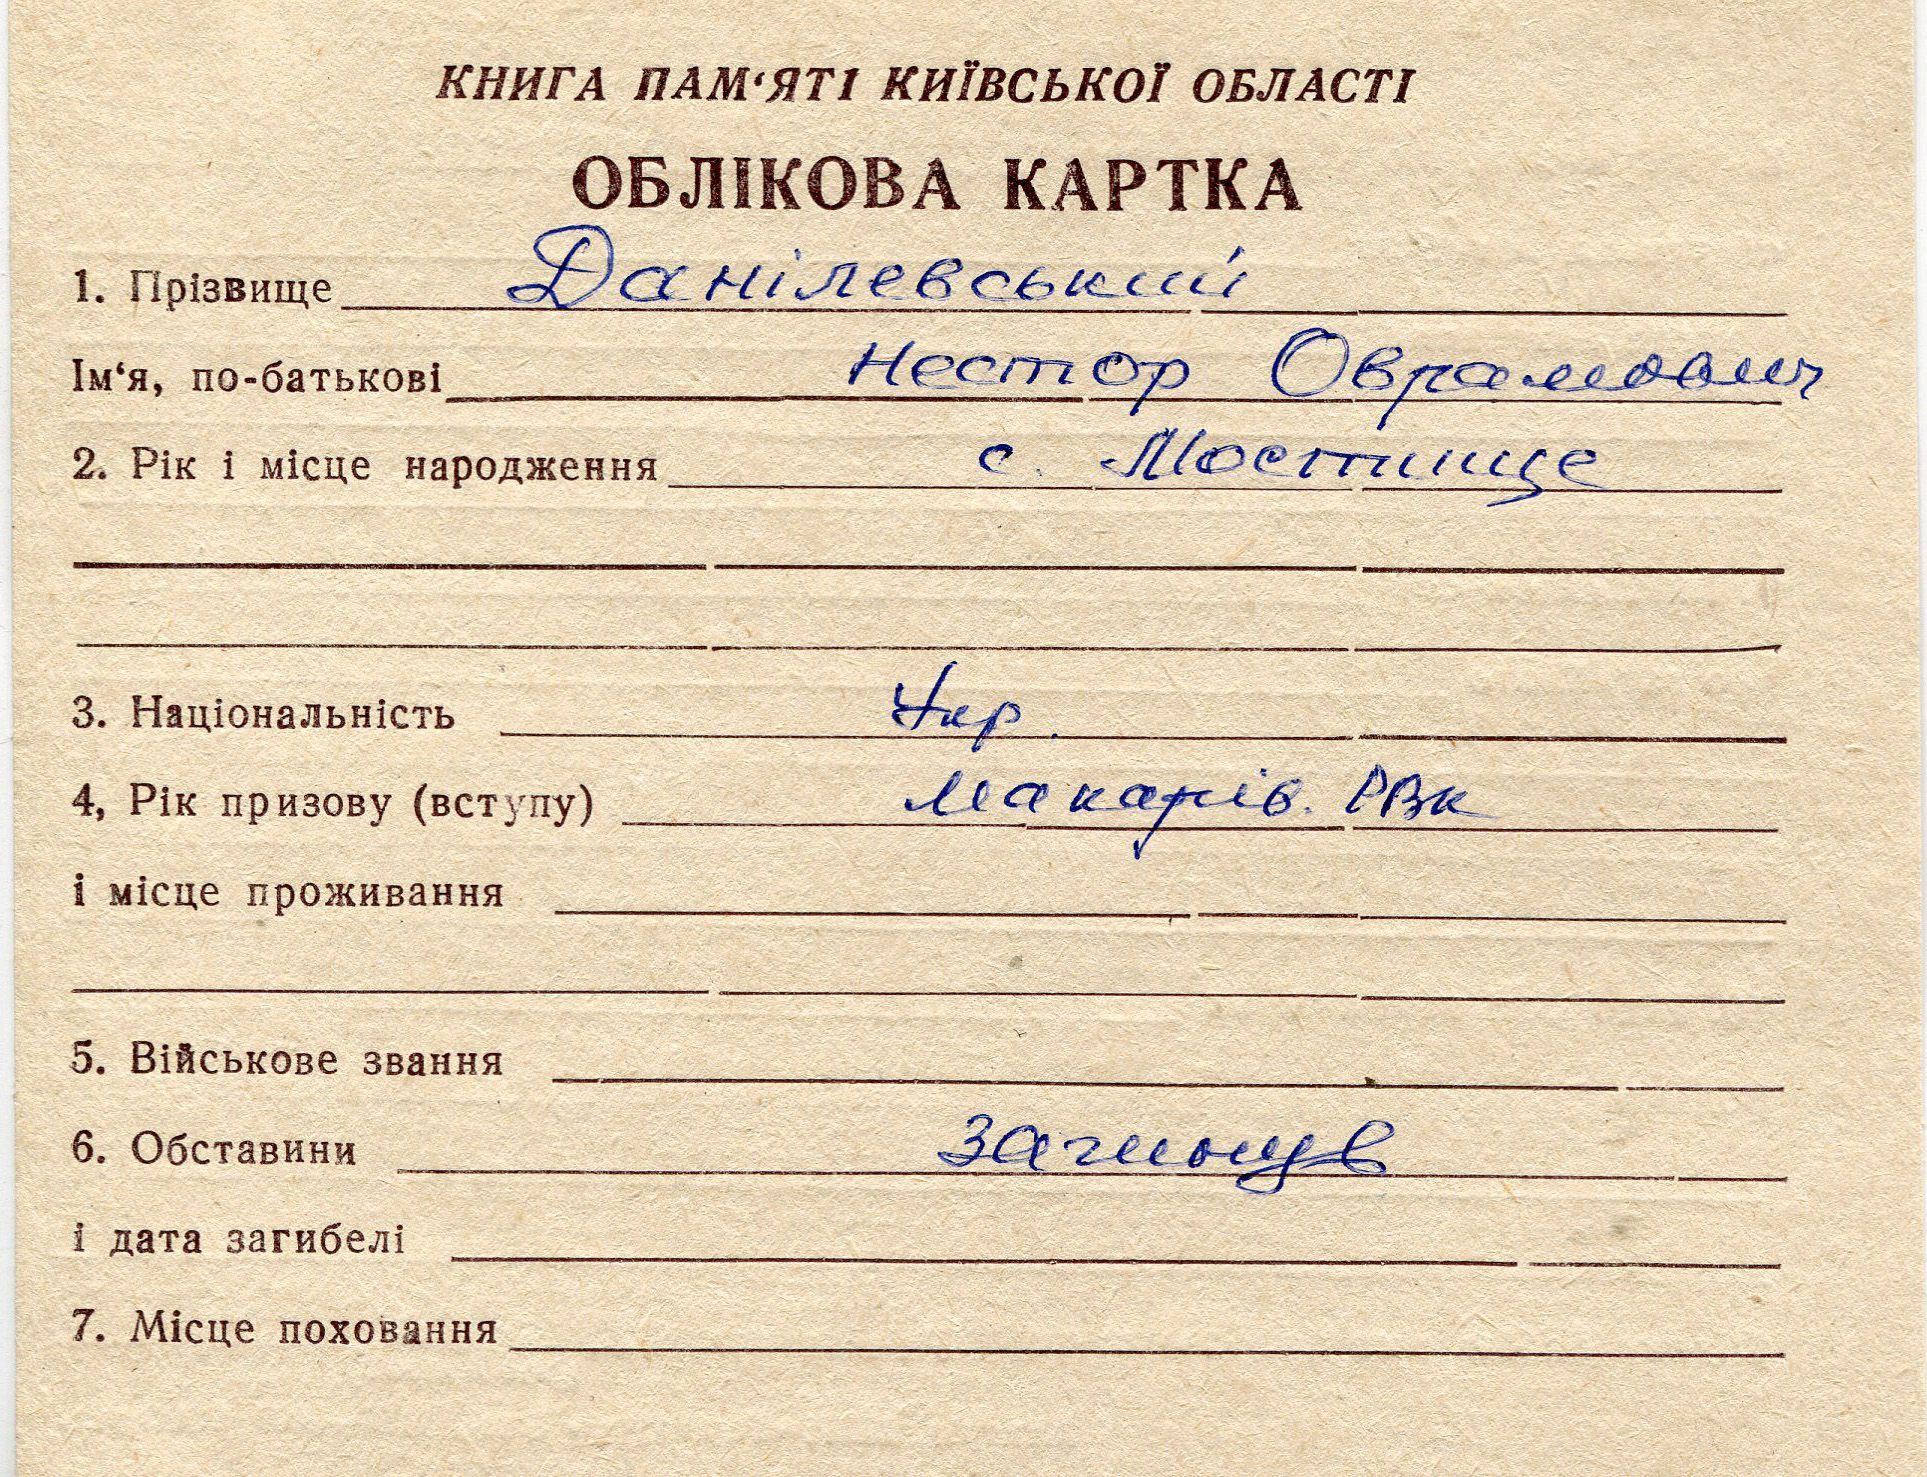 КНИГА ПАМ‘ЯТІ КИЇВСЬКОЇ ОБЛАСТІ
ОБЛІКОВА КАРТКА
1. Прізвище Данілевський
Ім‘я, по-батькові Нестор Оврамович
2. Рік і місце народження с. Мостище
3. Національність Укр.
4, Рік призову (вступу) Макарів. РВК
і місце проживання
5. Військове звання
6. Обставини Загинув
і дата загибелі
7. Місце поховання